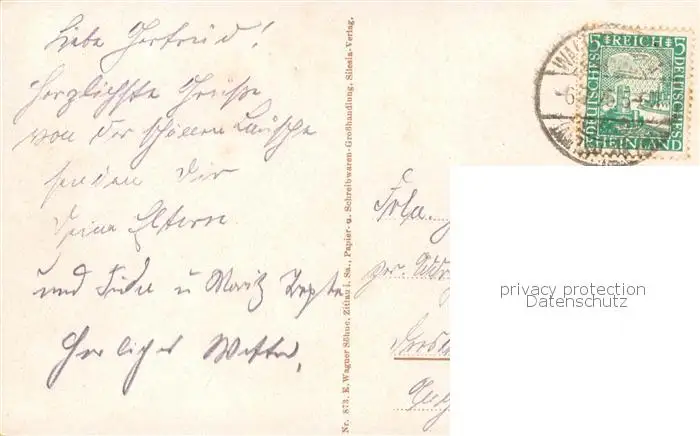 Liebe Gertrud!
Herzlichste Grüße
von der schönen Lausche
senden Dir
Deine Eltern
und u Moritz
Herrliches Wetter,
Nr. 873. E. Wagner Söhne, Zittau i. Sa., Papier- u. Schreibwaren-Großhandlung, Silesia-Verlag.
5 REICH 5
DEUTSCHES
DEUTSCHES
RHEINLAND
Frln.
per. Addr
Dresd
privacy protection
Datenschutz